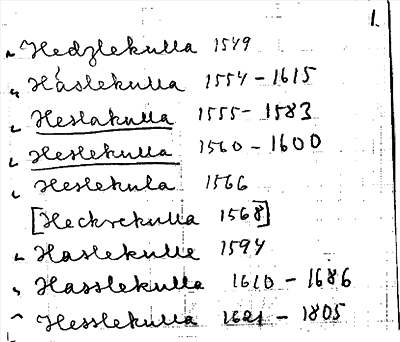 1.
Hedzlekulla 1549
Håslekulla 1554-1615
Heslakulla 1555-1583
Heslekulla 1560-1600
Heslekula 1566
[Heckrekulla 1568]
Haslekulle 1594
Hasslekulla 1610-1686
Hesslekulla 1621-1805